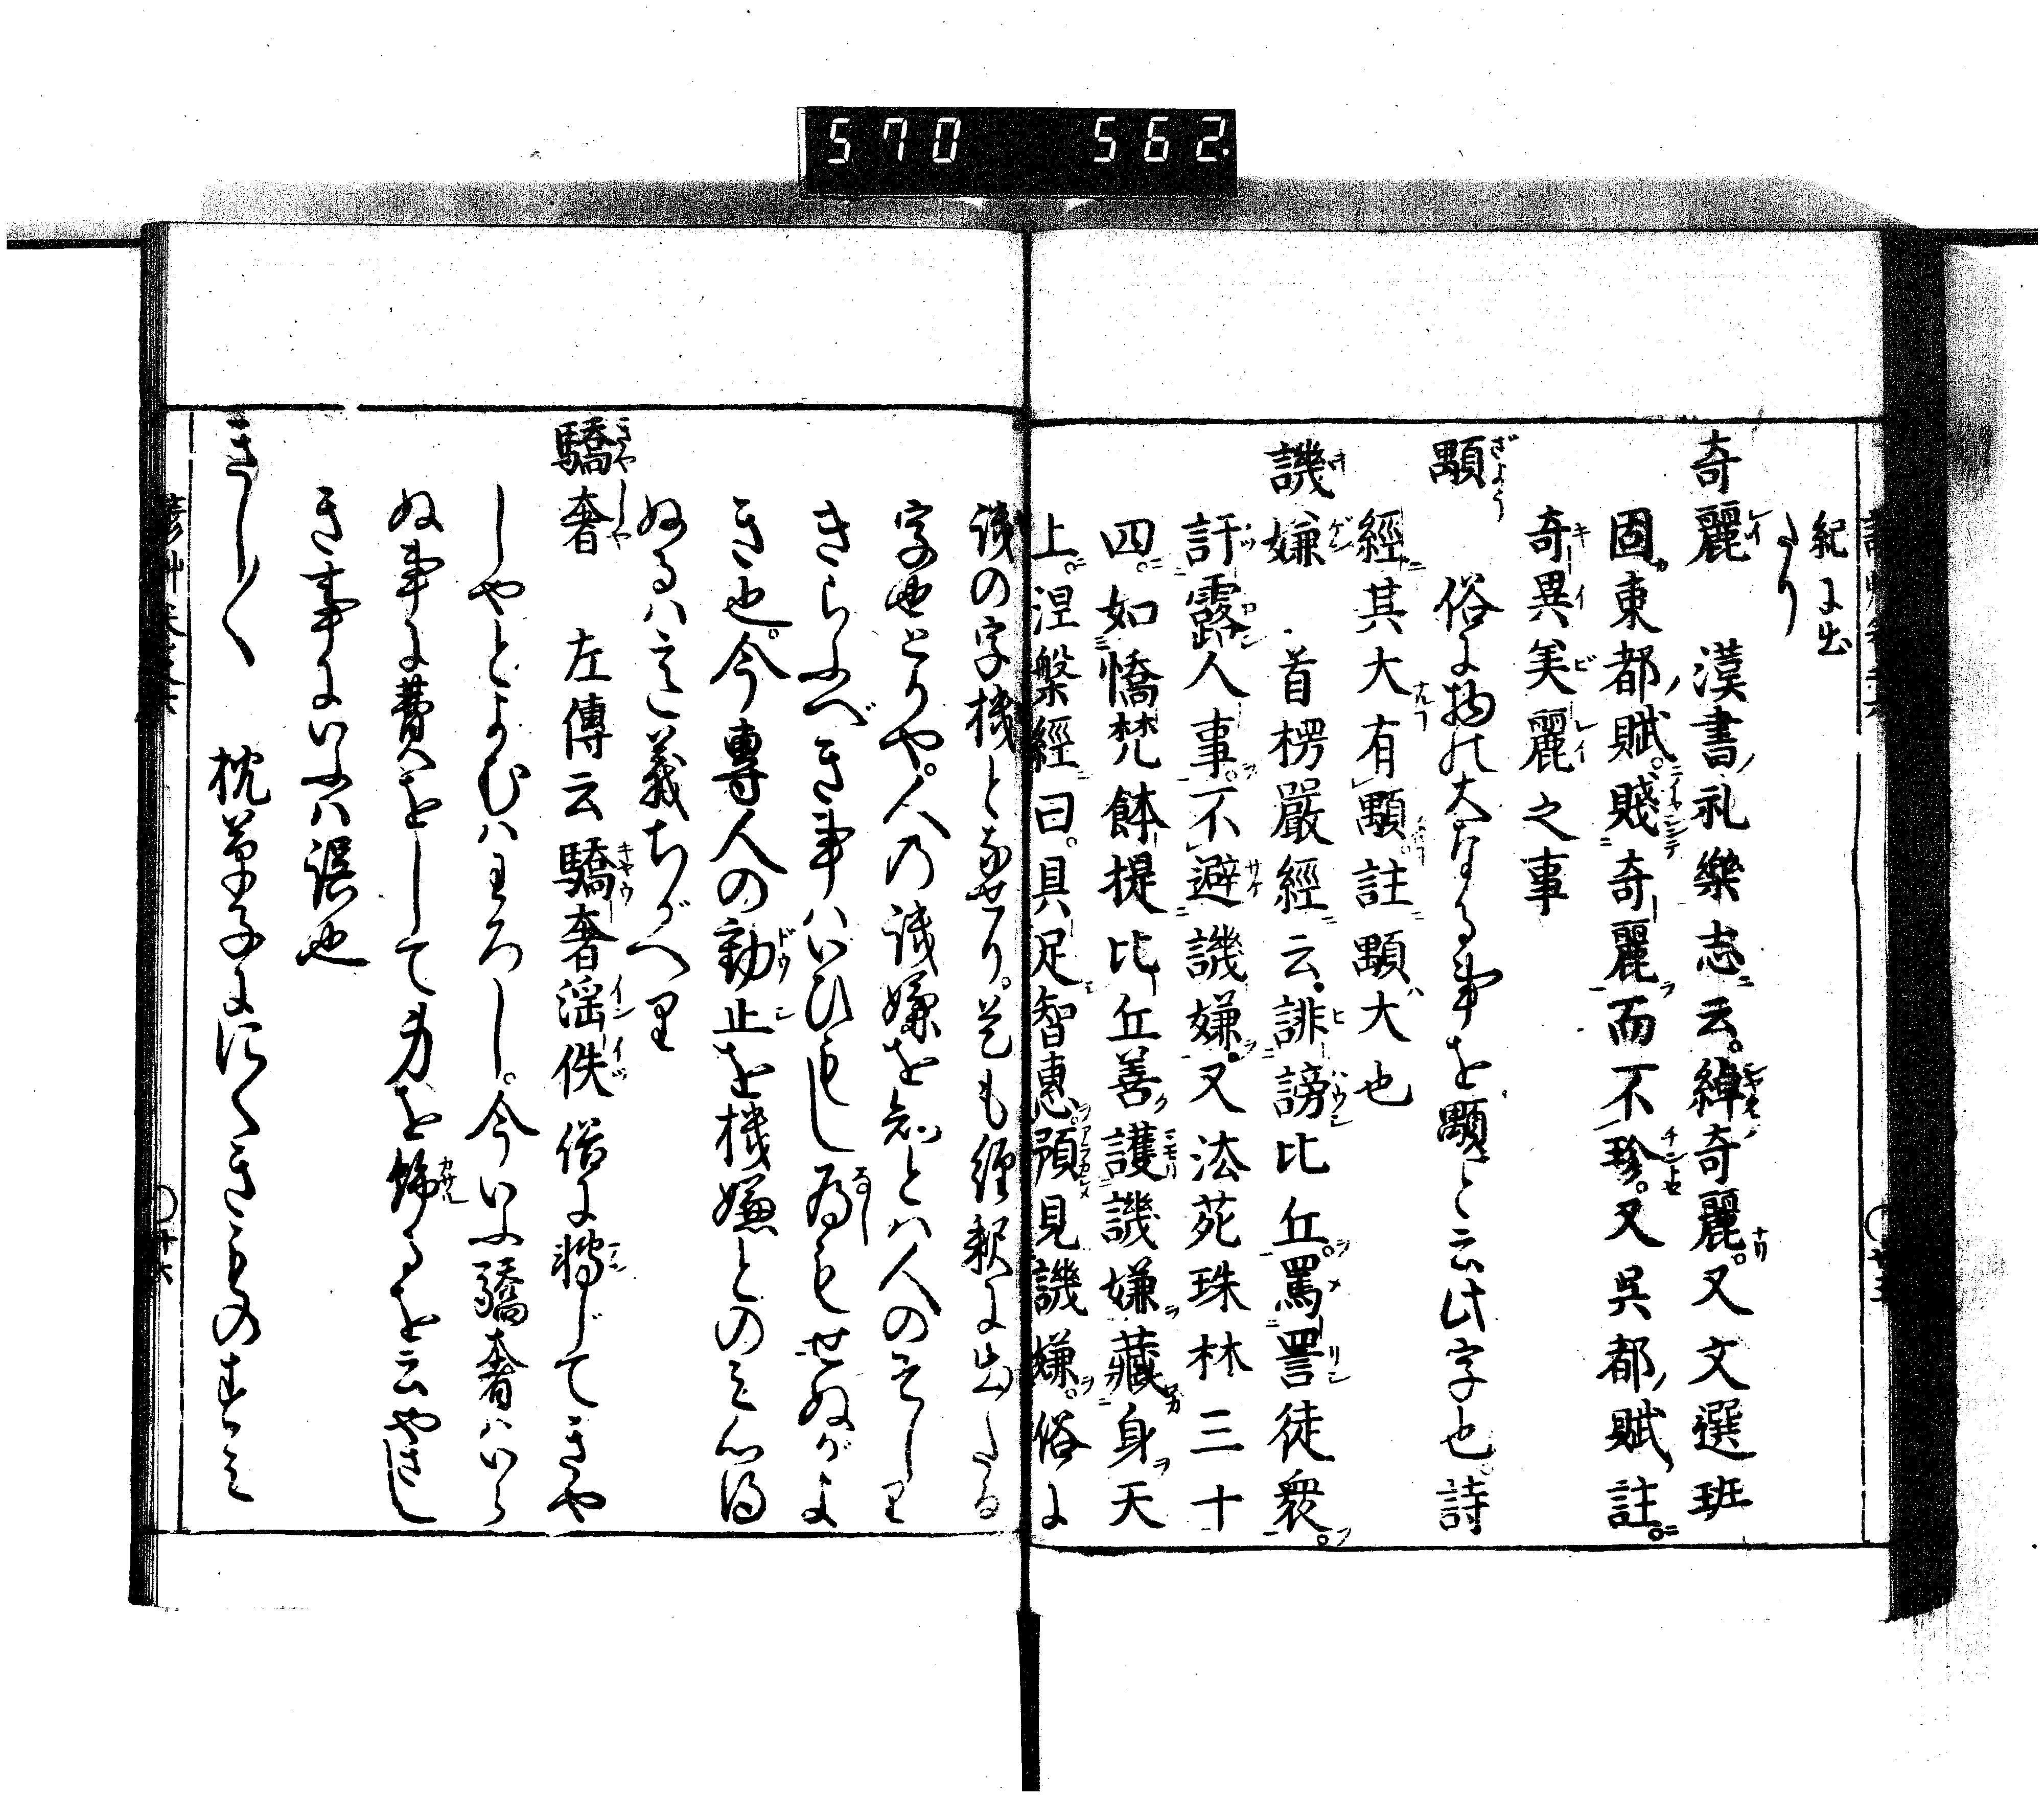 570 562
紀に出
たり
奇麗 漢書礼樂志云。綽奇麗。又文選班
固東都賦。賤奇麗而不珍。又呉都賦註。
奇異美麗之事
顒 俗に物の大なる事を顒と云此字也。詩
經其大有顒。註顒大也
譏嫌 首楞嚴經云。誹謗比丘。罵詈徒衆。
訐露人事。不避譏嫌。又法苑珠林三十
四。如憍梵鉢提比丘善護譏嫌藏身天
上。涅槃經曰。具足智惠。預見譏嫌。俗に
譏の字機となせり。是も經釈に出たる
字也とかや。人の譏嫌を知とは人のそしり
きらふべき事はいひもし為もせぬがよ
き也。今專人の動止を機嫌とのみ心得
ぬるは之義ちがへり
驕奢 左傳云驕奢淫佚俗に轉じてきや
しやとよむはわろし。今いふ驕奢はいら
ぬ事に費をして身を飾るを云やさし
き事にいふは誤也
きし〱 枕草子ににくきものすゞり